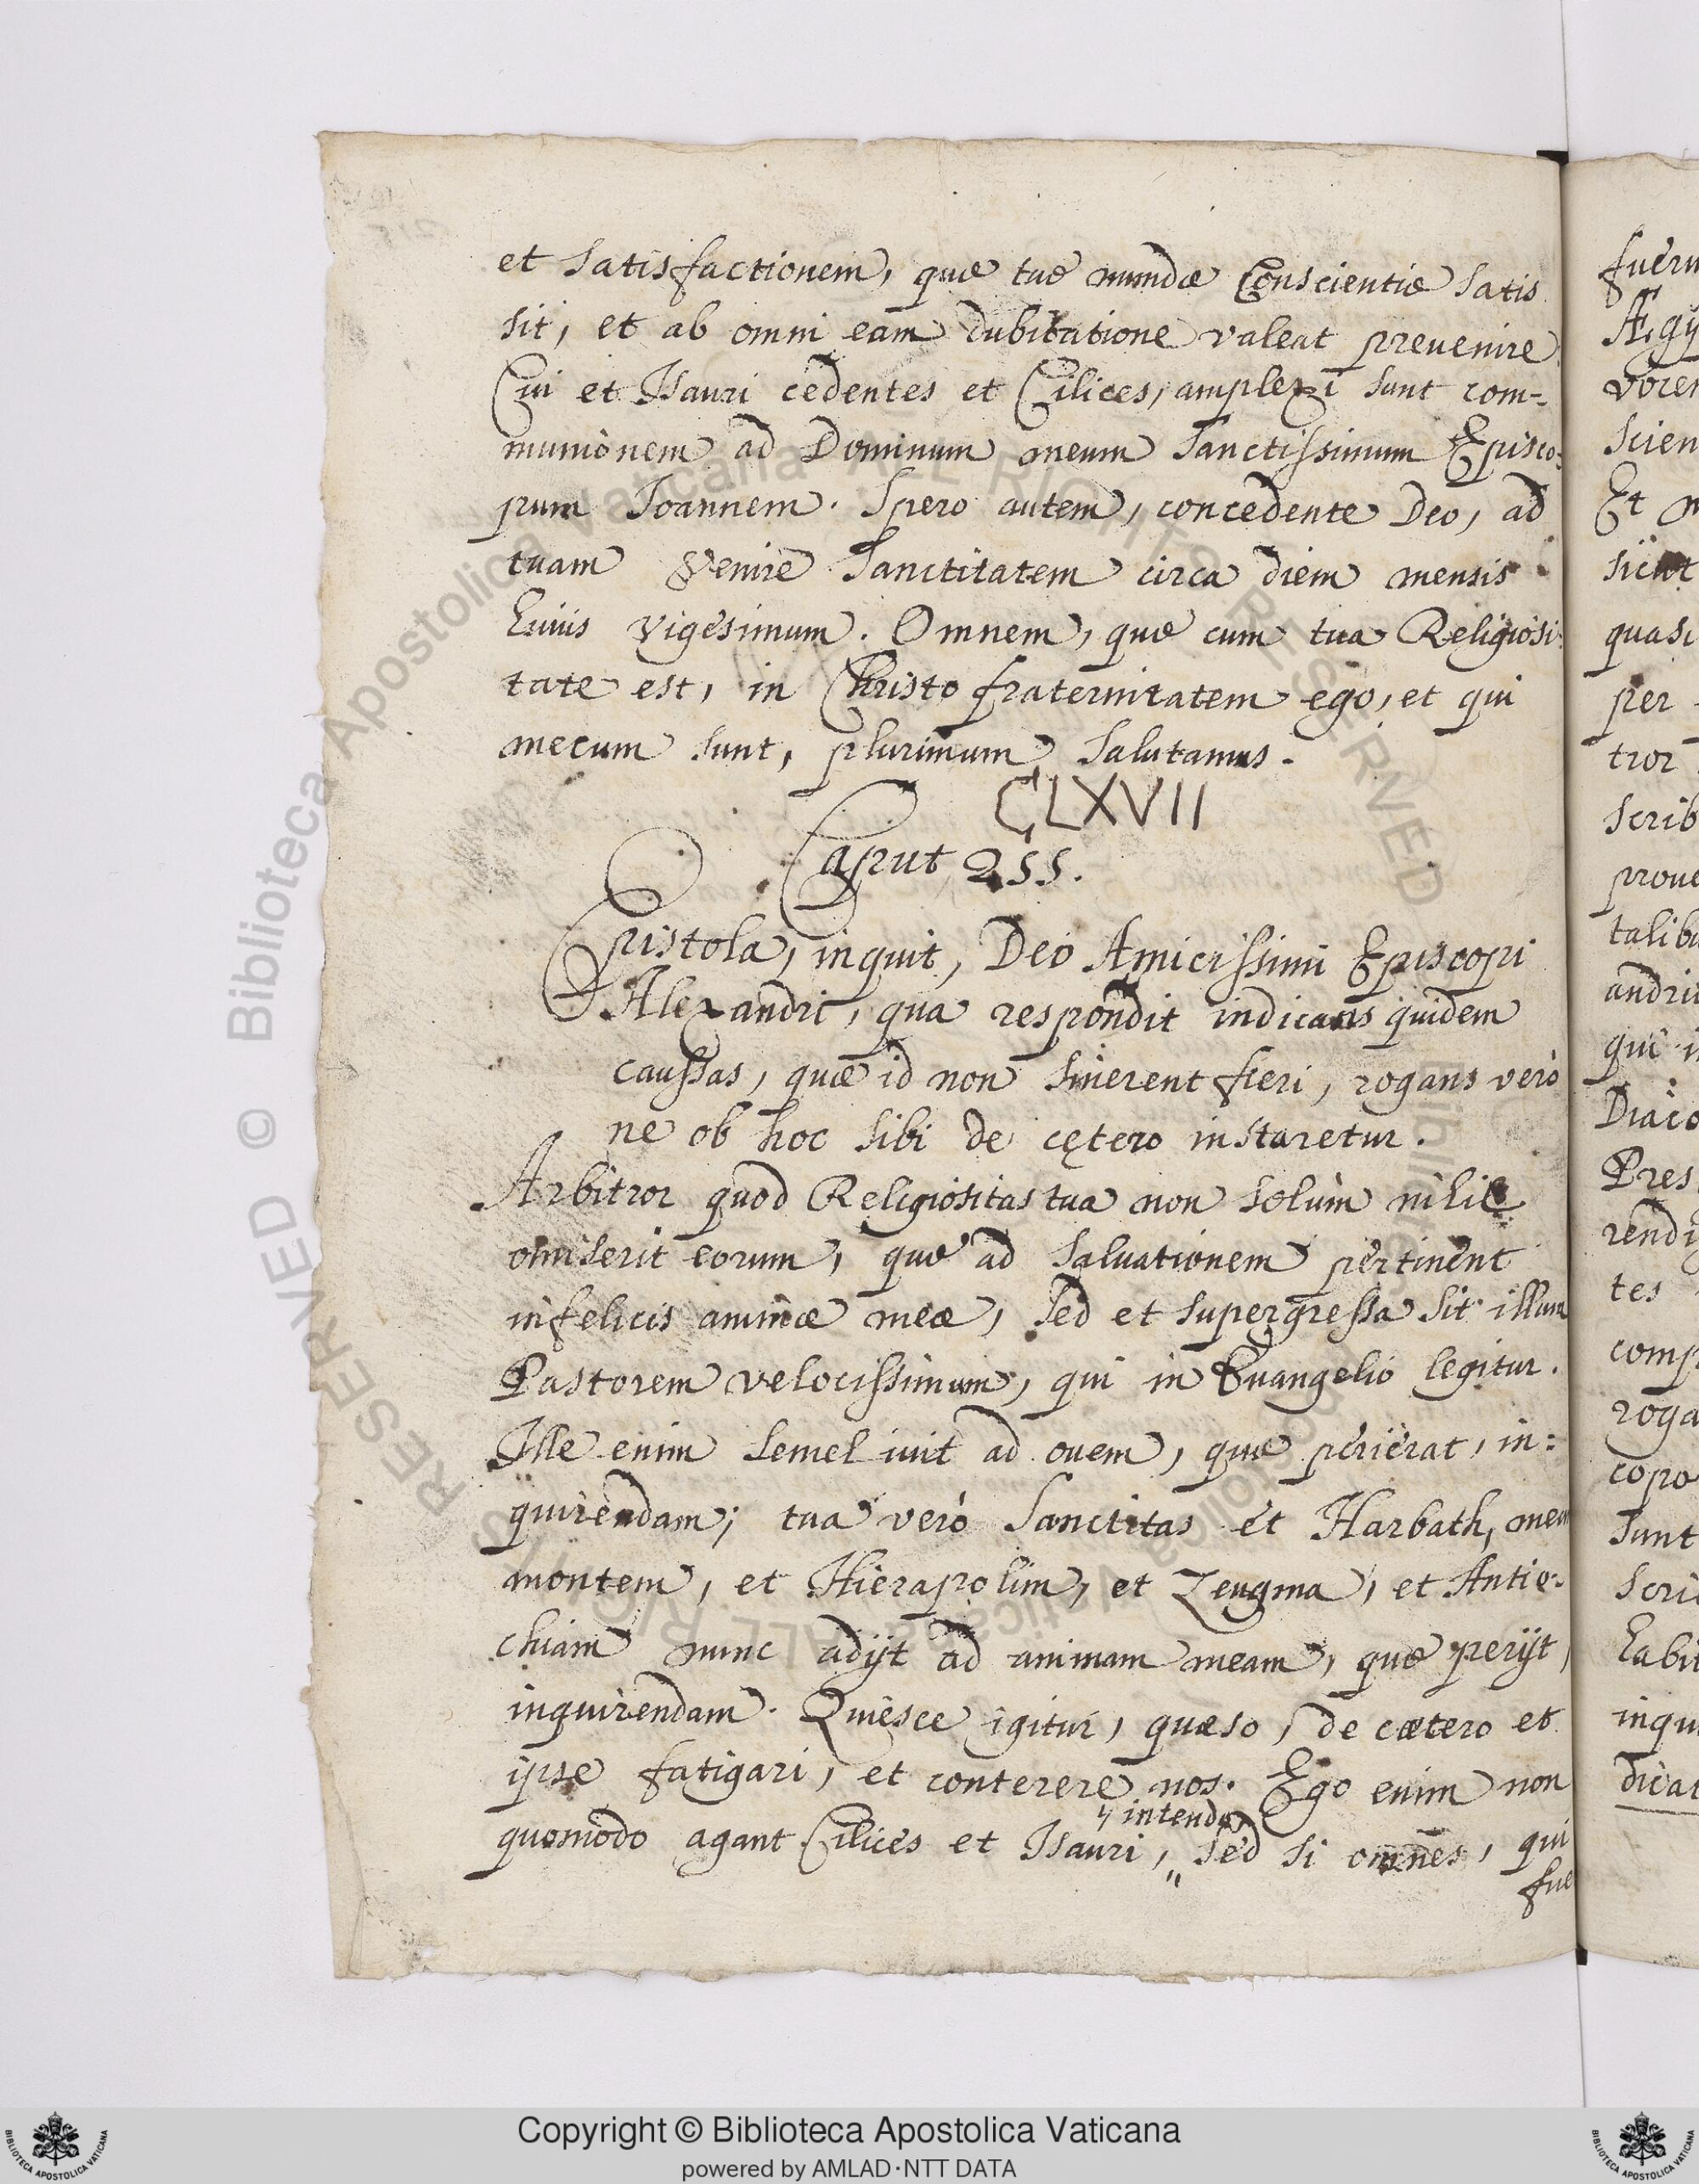 et satisfactionem, quæ tuæ mundæ Conscientiæ satis
sit, et ab omni eam dubitatione valeat prevenire
Cui et Isauri cedentes et Cilices, amplexi sunt com-
munionem ad Dominum meum Sanctissimum Episco-
pum Joannem. Spero autem, concedente Deo, ad
tuam venire Sanctitatem circa diem mensis
huius vigesimum. Omnem, quæ cum tua Religiosi-
tate est, in Christo fraternitatem ego, et qui
mecum sunt, plurimum salutamus.
CLXVII
Caput 255.
Epistola, inquit, Deo Amicissimi Episcopi
Alexandri, qua respondit indicans quidem
caussas, quæ id non sinerent fieri, rogans verò
ne ob hoc sibi de cętero instaretur.
Arbitror quod Religiositas tua non solùm nihil
omiserit eorum, quæ ad salvationem pertinent
infelicis animæ meæ, sed et supergressa sit illum
Pastorem velocissimum, qui in Evangelio legitur.
Ille enim semel ivit ad ovem, quæ perierat, in-
quirendam; tua verò Sanctitas et Harbath, meum
montem, et Hierapolim, et Zeugma, et Antio-
chiam nunc adijt ad animam meam, quæ perijt,
inquirendam. Quiesce igitur, quæso, de cætero et
ipse fatigari, et conterere nos. Ego enim non
intendo
quomodo agant Cilices et Isauri, sed si omnes, qui
fue
fueru
Ægy
vorer
scien
Et m
sicut
quasi
per
tror
scrib
prove
talibu
andri
qui i
Diaco
Pres
rendi
tes
comp
roga
copo
sunt
scri
habit
inqui
dicat
© Biblioteca Apostolica Vaticana ALL RIGHTS RESERVED
Copyright © Biblioteca Apostolica Vaticana
powered by AMLAD·NTT DATA
BIBLIOTECA APOSTOLICA VATICANA
BIBLIOTECA APOSTOLICA VATICANA